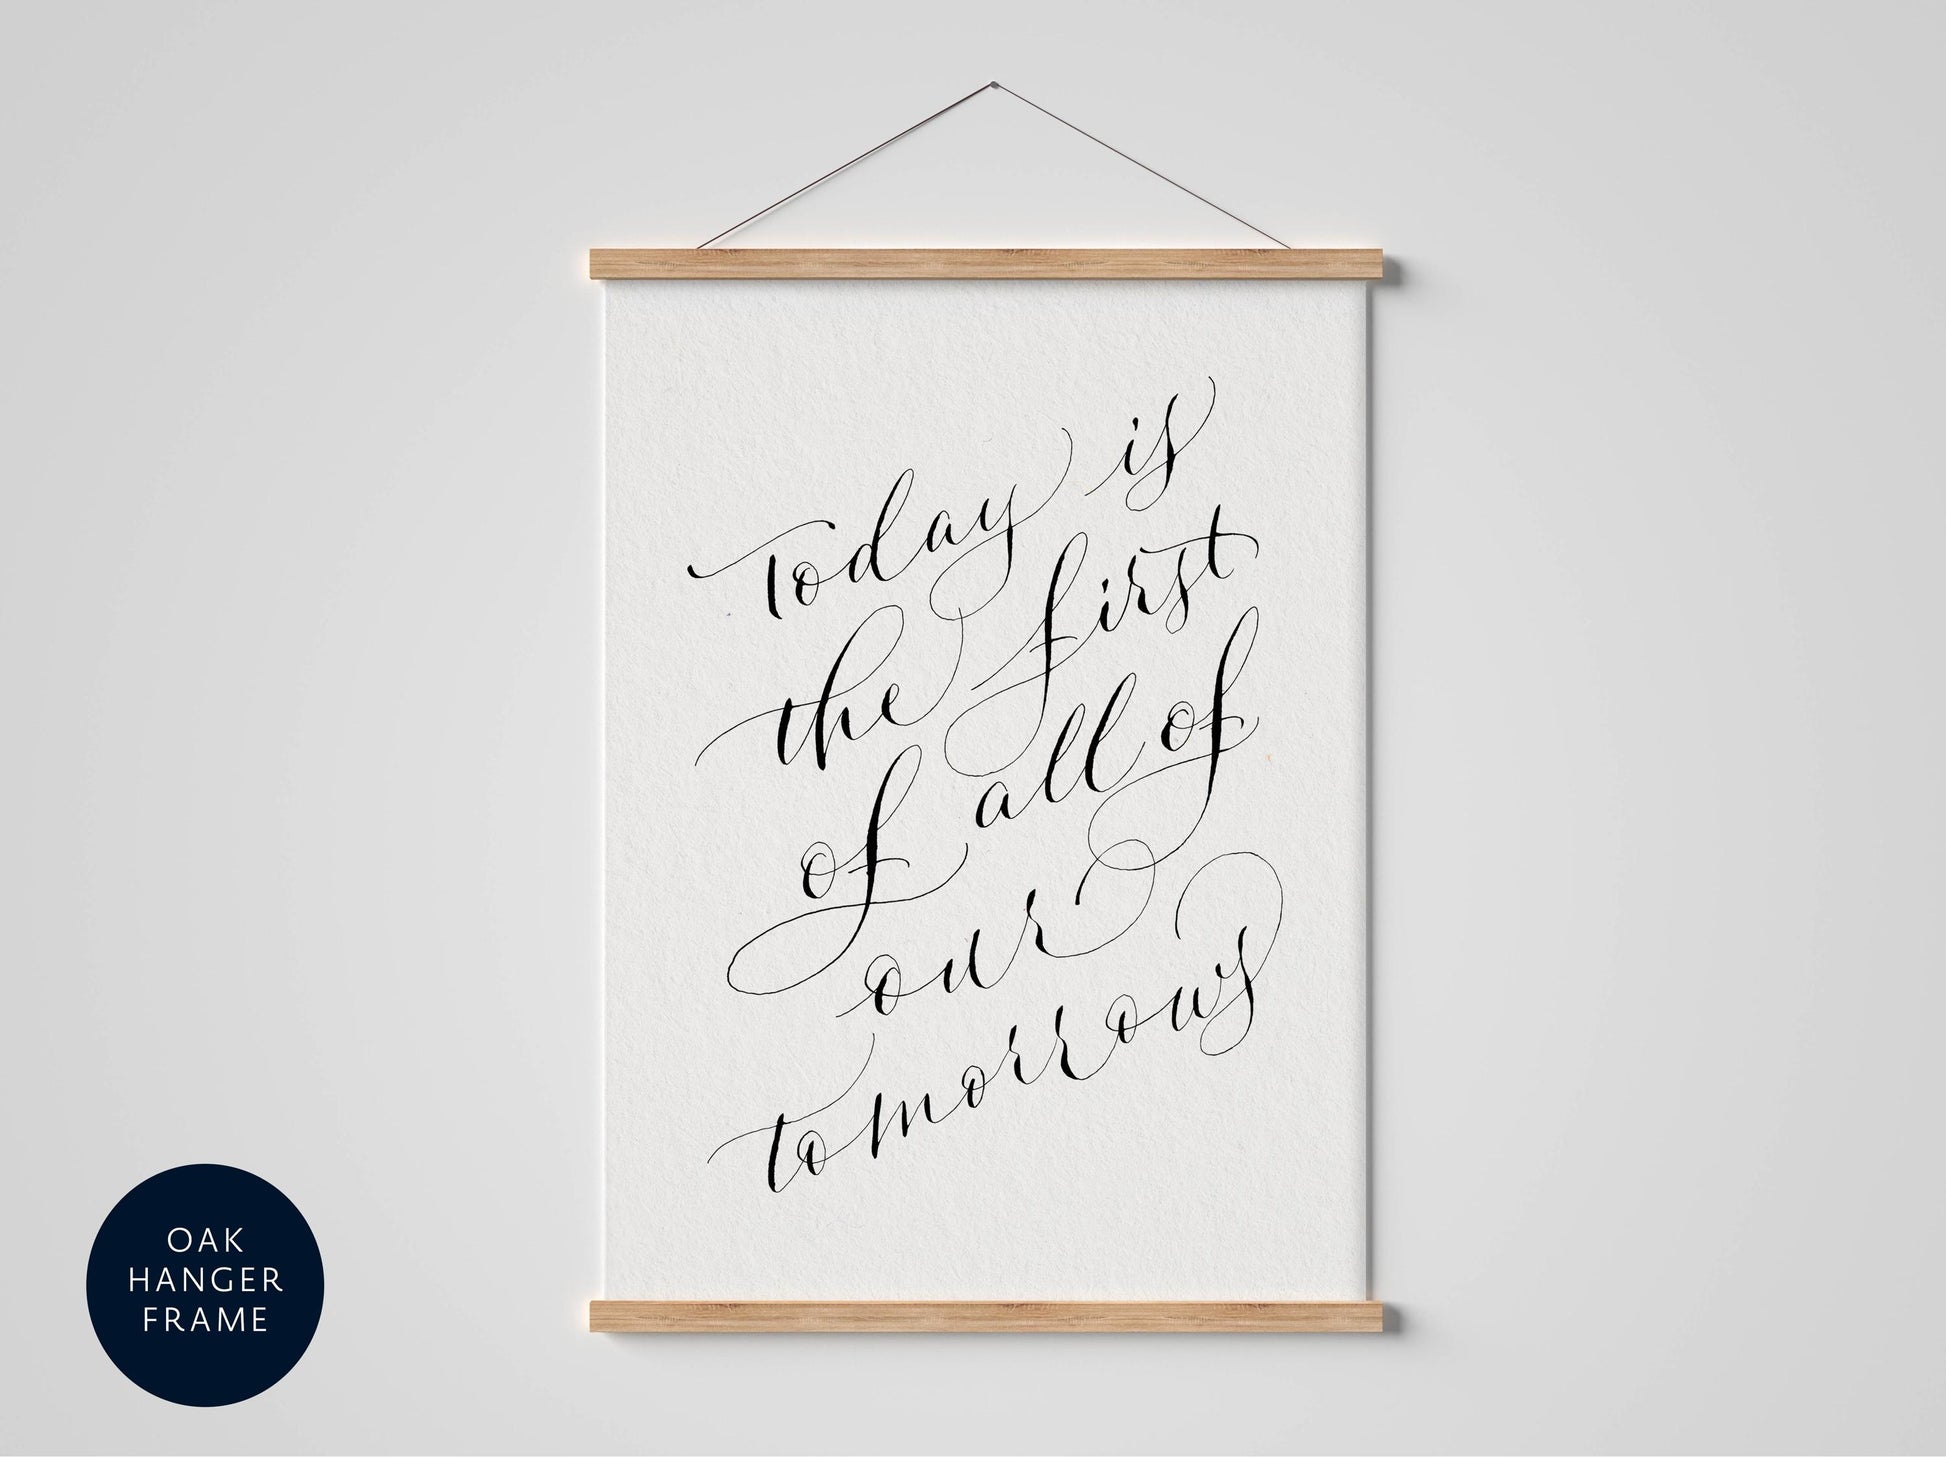 Today is
the first
of all of
our
tomorrows
OAK
HANGER
FRAME